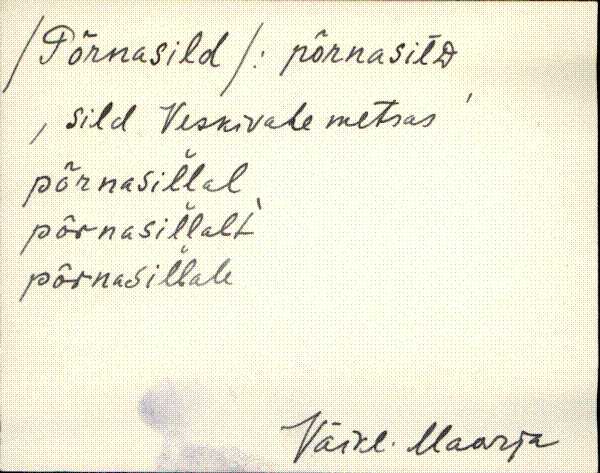 /Põrnasild/: põrnasilD
, sild Veskivahe metsas
põrnasil̆lal
põrnasil̆lalt
põrnasil̆lale
Väike-Maarja